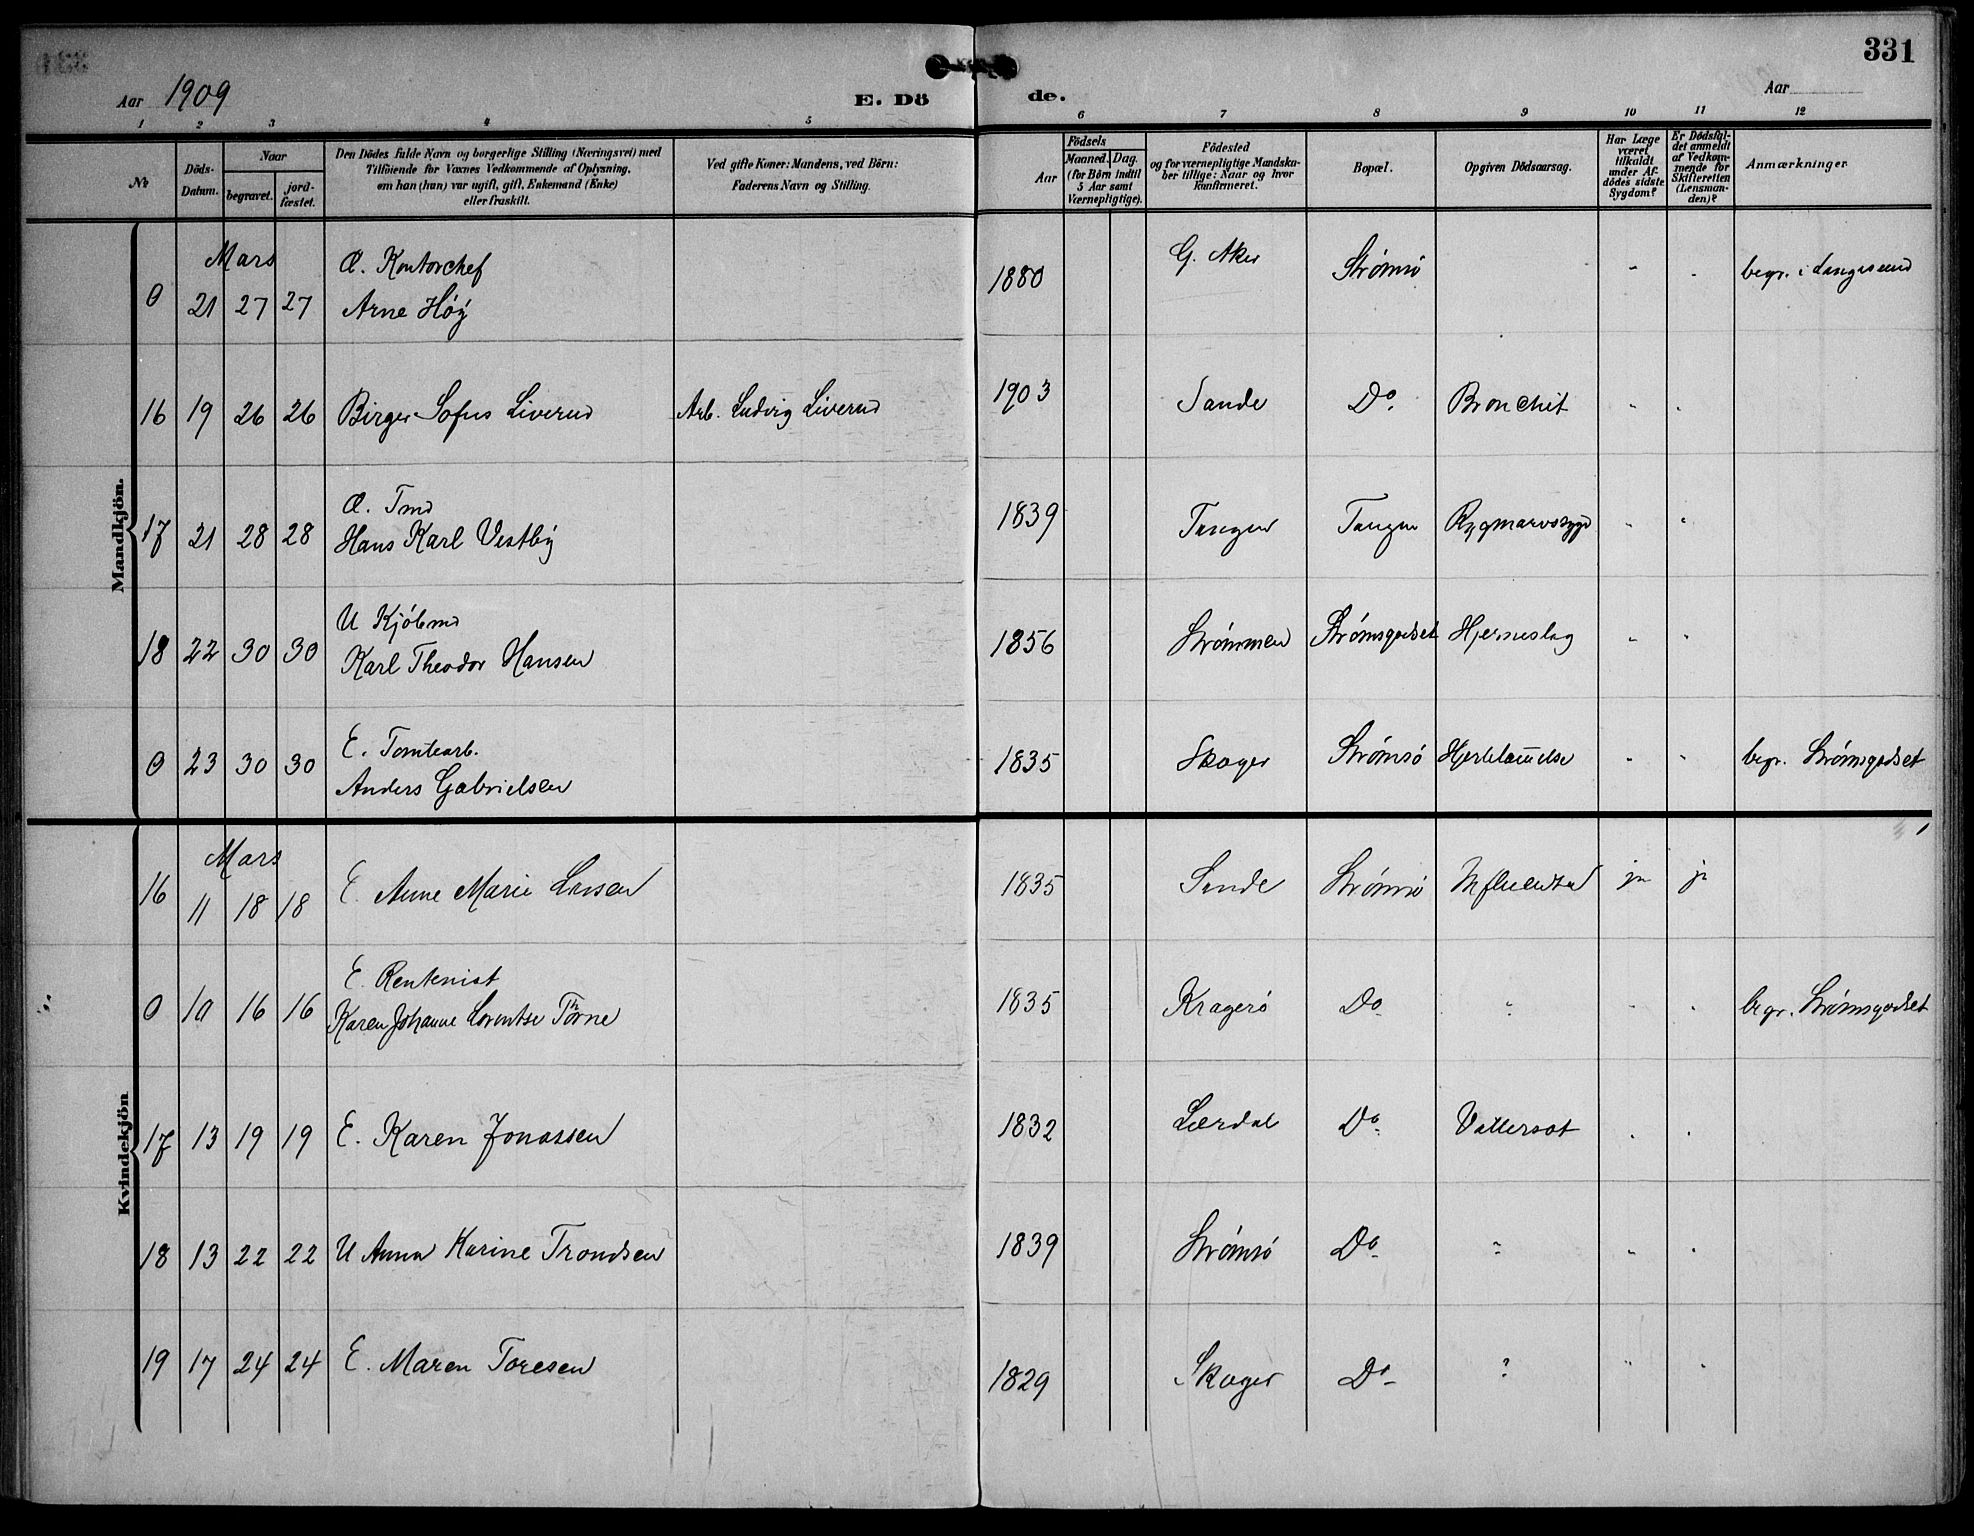 331
Aar 1909 E. Dö de. Aar
1 2 3 4 5 6 7 8 9 10 11 12
No
Döds-
Datum.
Naar
begravet.
jord-
fæstet.
Den Dödes fulde Navn og borgerlige Stilling (Næringsvei) med
Tilföiende for Voxnes Vedkommende af Oplysning,
om han (hun) var ugift, gift, Enkemand (Enke)
eller fraskilt.
Ved gifte Koner: Mandens, ved Börn:
Faderens Navn og Stilling.
Födsels
Aar
Maaned. Dag.
(for Börn indtil
5 Aar samt
Værnepligtige).
Födested
og for værnepligtige Mandska-
ber tillige: Naar og hvor
Konfirmeret.
Bopæl.
Opgiven Dödsaarsag.
Har Læge
været
tilkaldt
under Af-
dödes sidste
Sygdom?
Er Dödsfal-
det anmeldt
af Vedkom-
mende for
Skifteretten
(Lensman-
den)?
Anmærkninger
Mandkjön.
Mars
Æ. Kontorchef
0 21 27 27 Arne Höy 1880 G. Aker Strømsø " " begr. i Langesund
16 19 26 26 Birger Sofus Liverud Arb. Ludvig Liverud 1903 Sande Do Bronchit " "
Æ. Tmd
17 21 28 28 Hans Karl Vestby 1839 Tangen Tangen Rygmarvssygd " "
U Kjöbmd
18 22 30 30 Karl Theodor Hansen 1856 Strømmen Strømsgodset Hjerneslag " "
E. Tomtearb.
0 23 30 30 Anders Gabrielsen 1835 Skoger Strømsø Hjertelammelse " " begr. Strømsgodset
Kvindekjön
Mars
16 11 18 18 E. Anne Marie Larsen 1835 Sande Strømsø Influentsa ja ja
E. Rentenist
0 10 16 16 Karen Johanne Lorentse Thorne 1835 Kragerø Do " " " begr. Strømsgodset
17 13 19 19 E. Karen Jonassen 1832 Lærdal Do Vattersot " "
18 13 22 22 U Anna Karine Trondsen 1839 Strømsø Do " " "
19 17 24 24 E. Maren Toresen 1829 Skoger Do ? " "